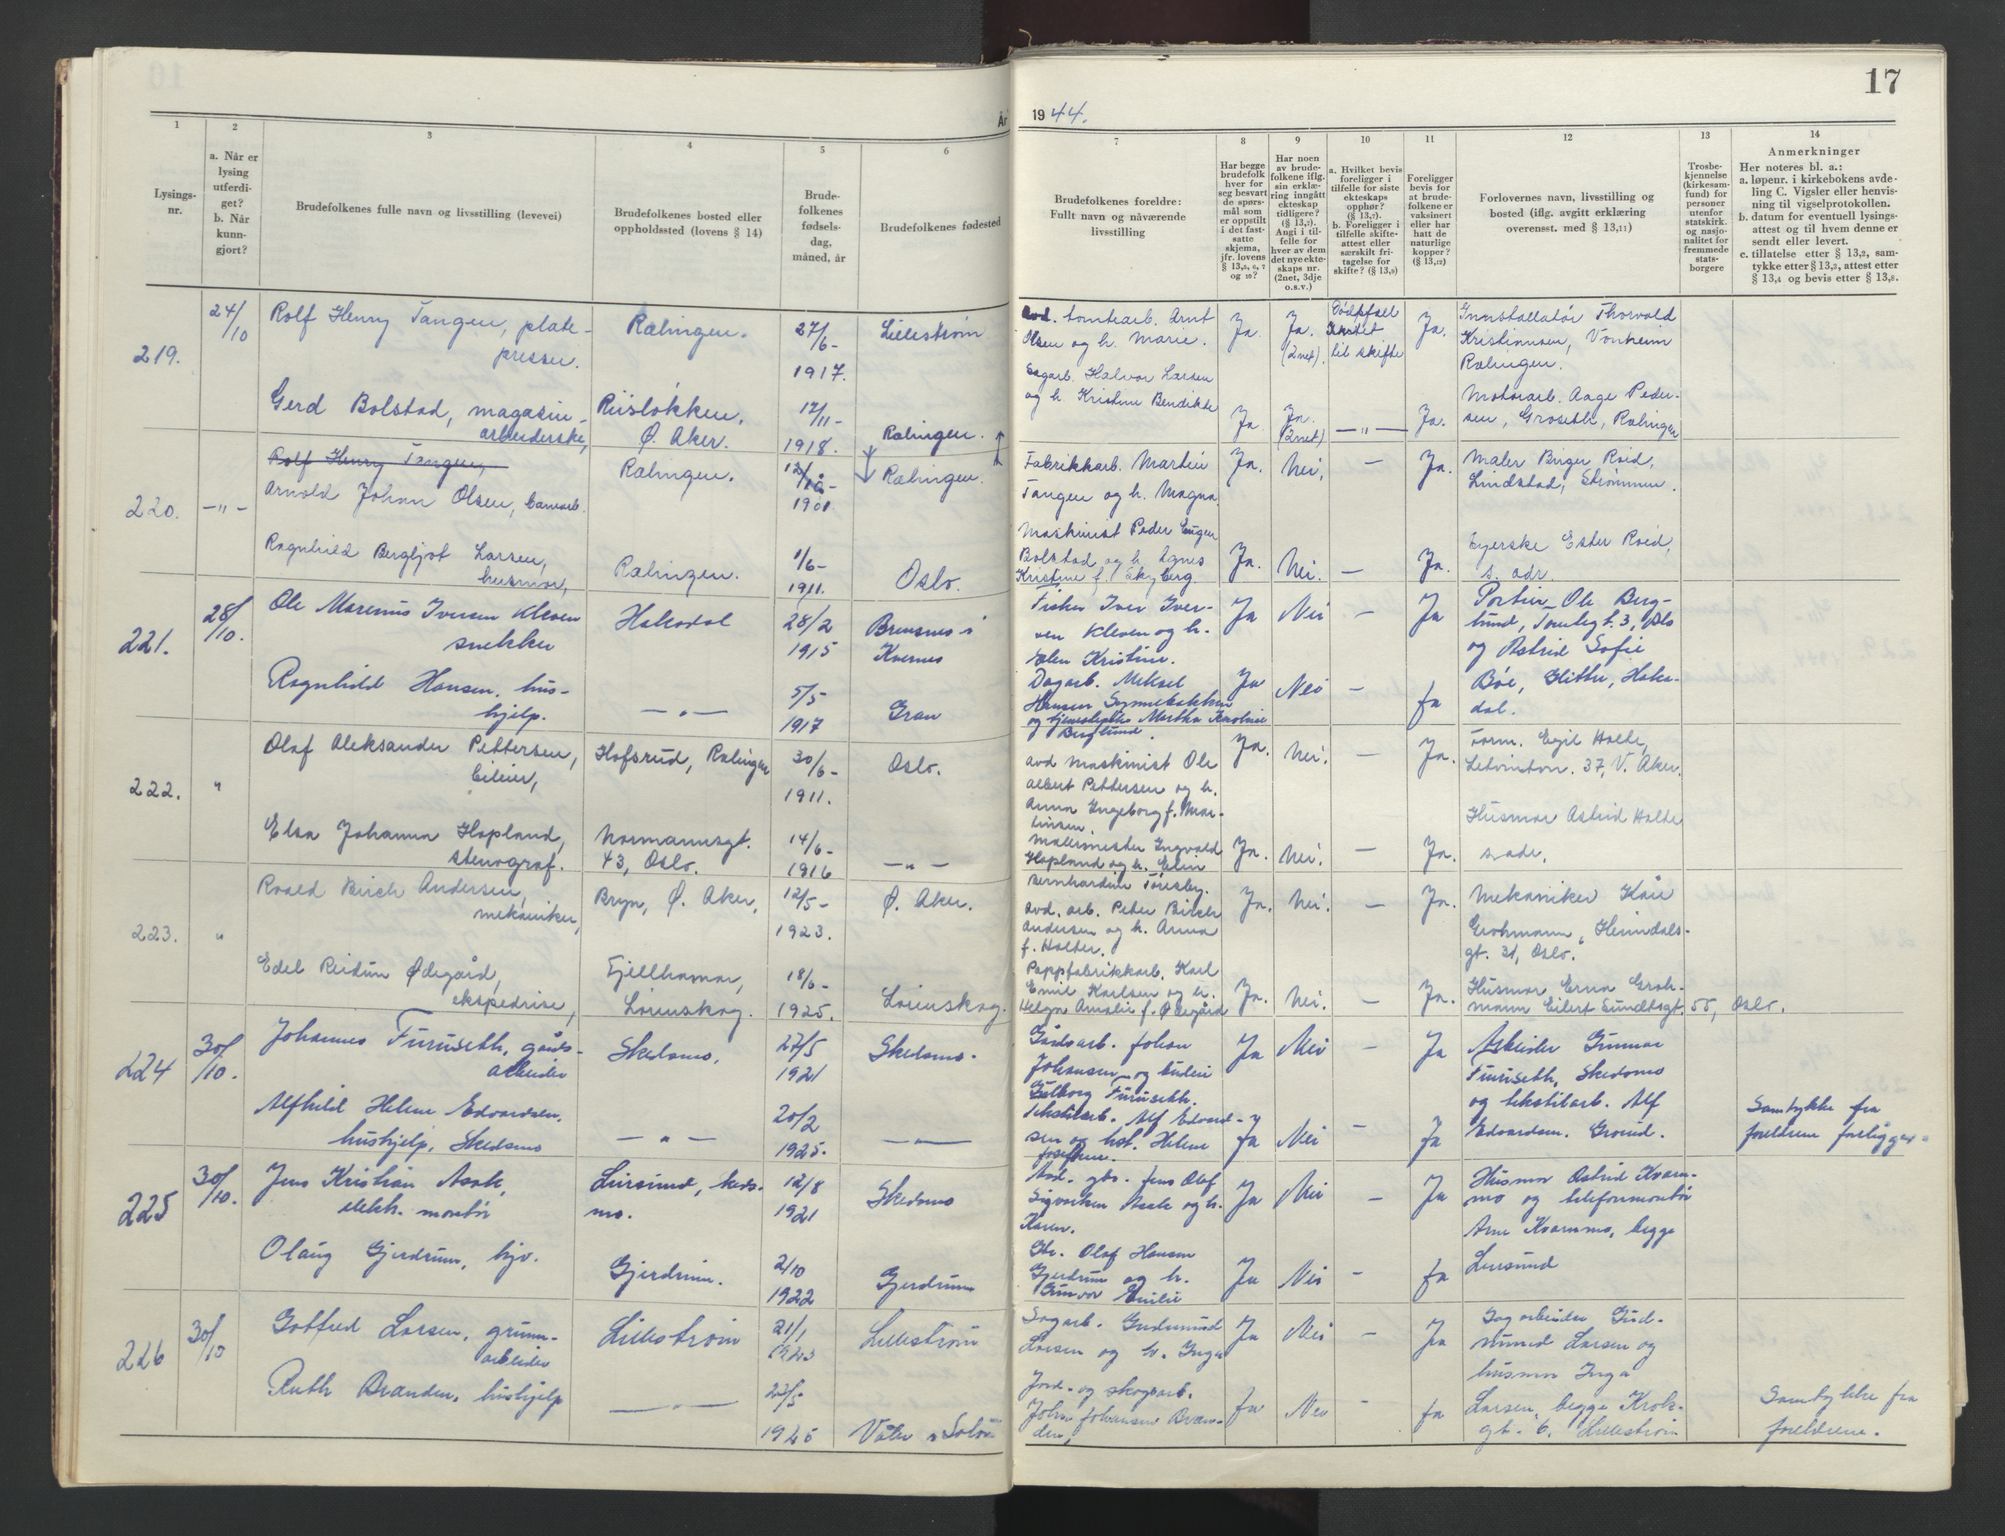 17
År 1944.
1
2
3
4
5
6
7
8
9
10
11
12
13
14
Lysings-
nr.
a. Når er
lysing
utferdi-
get?
b. Når
kunn-
gjort?
Brudefolkenes fulle navn og livsstilling (levevei)
Brudefolkenes bosted eller
oppholdssted (lovens § 14)
Brude-
folkenes
fødsels-
dag,
måned, år
Brudefolkenes fødested
Brudefolkenes foreldre:
Fullt navn og nåværende
livsstilling
Har begge
brudefolk
hver for
seg besvart
de spørs-
mål som
er oppstilt
i det fast-
satte
skjema,
jfr. lovens
og 10?
Har noen
av brude-
folkene iflg.
sin erklæ-
ring inngått
ekteskap
tidligere?
Angi i til-
felle for
hver av dem
det nye ekte-
skaps nr.
(2net, 3dje
o.s.v.)
a. Hvilket bevis
foreligger i
tilfelle for siste
ekteskaps
opphør?
b. Foreligger i
tilfelle skifte-
attest eller
særskilt fri-
tagelse for
skifte? (§ 13,9)
Foreligger
bevis for
at brude-
folkene er
vaksinert
eller har
hatt de
naturlige
kopper?
(§ 13,12)
Forlovernes navn, livsstilling og
bosted (iflg. avgitt erklæring
overensst. med § 13,11)
Trosbe-
kjennelse
(kirkesam-
fund) for
personer
utenfor
statskirk.
og nasjo-
nalitet for
fremmede
stats-
borgere
Anmerkninger
Her noteres bl. a.:
a. løpenr. i kirkebokens avde-
ling C. Vigsler eller henvis-
ning til vigselprotokollen.
b. datum for eventuell lysings-
attest og til hvem denne er
sendt eller levert.
c. tillatelse etter § 13,2, sam-
tykke etter § 13,3, attest etter
§ 13,4 og bevis etter § 13,8.
219.
24/10
Rolf Henry Tangen, plate-
presser.
Rælingen.
27/6-
1917.
Lillestrøm
Avd. tomtearb. Arnt
Olsen og h. Marie.
Ja.
Ja.
(2net).
Dødsfall
til skifte
Ja.
Installatør Thorvald
Kristiansen, Vonheim
Rælingen.
Gerd Bolstad, magasin-
arbeiderske,
Riisløkken,
Ø. Aker.
12/11-
1918.
Rælingen.
Sagarb. Halvor Larsen
og h. Kristine Bendikte
Ja
Ja.
(2net)
—"—
Ja.
Motorarb. Aage Peder-
sen, Groseth, Rælingen
220.
—"—
Rolf Henry Tangen,
Arnold Johan Olsen,
Rælingen.
1901
Rælingen.
Fabrikkarb. Martin
Tangen og h. Magna.
Ja.
Nei,
—
Ja.
Maler Birger Roid,
Lindstad, Strømmen.
Ragnhild Bergljot Larsen,
husmor,
Rælingen.
1/6-
1911.
Oslo.
Maskinist Peder Eugen
Bolstad og h. Agnes
Kristine f. Skyberg
Ja.
Nei.
—
Ja.
Syerske Ester Roid,
s. adr.
221.
28/10.
Ole Marenius Iversen Kleven
snekker
Hakadal
28/2
1915
Bremsnes i
Kvernes
Fisker Iver Iver-
sen Kleven og h.
Elen Kristine.
Ja
Nei
—
Ja
Portier Ole Berg-
lund, Tomtegt. 3, Oslo
og Astrid Sofie
Ragnhild Hansen, hus-
hjelp.
—"—
5/5
1917
Gran
Dagarb. Miksel
Hansen
og tjenestepike Martha Karoline
Berglund.
Ja
Nei
—
Ja
Bøe, Glitre, Haka-
dal.
222.
"
Olaf Aleksander Pettersen,
Eileier,
Hofsrud, Rælingen
30/6-
1911.
Oslo.
Avd maskinist Ole
Albert Pettersen og h.
Anna Ingeborg f. Mar-
tinsen.
Ja.
Nei.
—
Ja.
Form. Egil Holte,
37, V. Aker.
Elsa Johanna Hopland,
stenograf.
Normannsgt.
43, Oslo.
14/6-
1916
—"—
Malermester Ingvald
Hopland og h. Elin
Bernhardine Føresby.
Ja.
Nei.
—
Ja.
Husmor Astrid Holte
s. adr.
223.
"
Roald Birch Andersen,
mekaniker,
Bryn, Ø. Aker,
12/5-
1923.
Ø. Aker.
Avd. arb. Peter Birch
Andersen og h. Anna
f. Holter.
Ja.
Nei.
—
Ja.
Mekaniker Kåre
Grohmann, Heimdals-
gt. 31, Oslo.
Edel Reidun Ødegård,
ekspedrise,
Fjellhamar,
Lørenskog.
18/6-
1925.
Lørenskog.
Pappfabrikkarb. Karl
Emil Karlsen og h.
Helga Amalie f. Ødegård
Ja.
Nei.
—
Ja.
Husmor Erna Groh-
mann Eilert Sundtsgt 55, Oslo.
224
30/10.
Johannes Furuseth, gårds-
arbeider
Skedsmo.
27/5
1921
Skedsmo.
Gårdsarb. Johan
Johansen og Emilie
Gulborg Furuseth.
Ja
Nei
Ja
Arbeider Gunnar
Furuseth, Skedsmo
og tekstilarb. Alf
Alfhild Helene Edvardsen,
hushjelp, Skedsmo
—"—
20/2
1925.
—"—
Tekstilarb. Alf Edvard-
sen og hst. Helene
Josefine.
Ja
Nei
—
Ja
Edvardsen. Grorud.
Samtykke fra
foreldrene foreligger.
225
30/10.
Jens Kristian Asak,
elekh. montør
Leirsund, Skeds-
mo.
12/8
1921
Skedsmo
Avd. gbr. Jens Olaf
Sigvartsen Asak og h.
Karen.
Ja
Nei
—
Ja
Husmor Astrid Kvam-
mo og telefonmontør
Arne Kvammo, begge
Olaug Gjerdrum, hjv.
Gjerdrum.
2/10
1922
Gjerdrum
Gbr. Olaf Hansen
Gjerdrum og h.
Gunvor Emilie
Ja
Nei
—
Ja
Leirsund
226
30/10
Gotfred Larsen, grunn-
arbeider
Lillestrøm
21/1
1923
Lillestrøm
Sagarb. Gudmund
Larsen og h. Inga
Ja
Nei
—
Ja
Sagarbeider Gud-
mund Larsen og
husmor Inga
Ruth Branden, hushjelp
—"—
23/5
1925
Våler i Solør
Jord- og skogsarb.
Johan Johansen Bran-
den,
Ja
Nei
-
Ja
Larsen, begge Krok-
gt. 6, Lillestrøm
Samtykke fra
foreldrene.